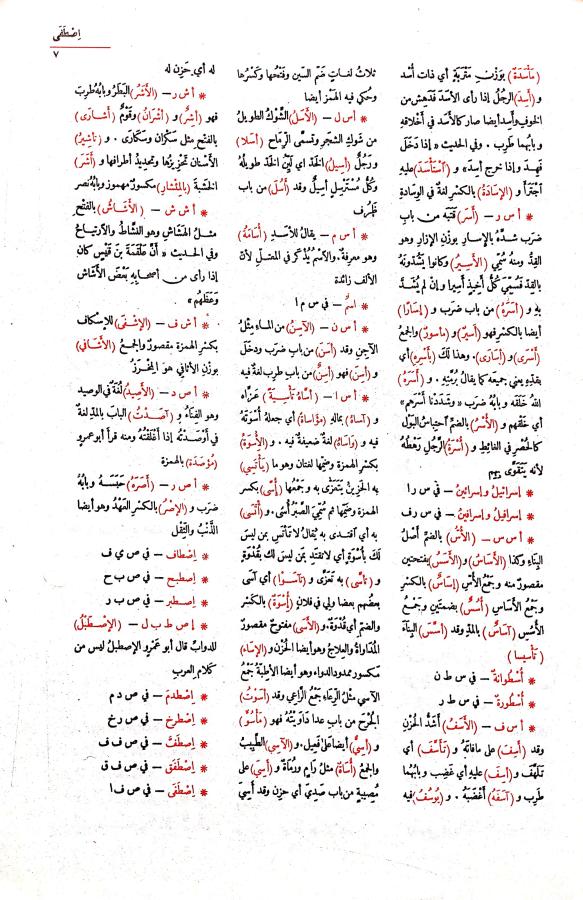 اِصْطَفَى
٧
(مَأْسَدَةٌ) بوَزْن مَتْرَبَةٍ أي ذات أُسْد
و(أَسِدَ) الرجُلُ إذا رأى الأَسَدَ فَدَهِشَ من
الخوف وأَسِدَ أيضا صار كالأسَد في أخْلاقه
وبابُهما طَرِبَ . وفي الحديث « إذا دَخَلَ
فَهِدَ وإذا خرج أَسِدَ » و (اسْتَأْسَدَ) عليه
اجْتَرَأ و (الإِسَادَةُ) بالكسْر لغةٌ في الوِسَادة
* أ س ر – (أَسَرَ) قَتَبَه من باب
ضرب شدَّهُ بالإسار بوزْن الإزار وهو
القِدُّ ومنه سُمِّيَ (الأَسِيرُ) وكانوا يَشُدُّونَهُ
بالقِدّ فسُمِّيَ كلُّ أَخِيذٍ أسيرا وإنْ لم يُشَدَّ
به و (أَسَرَهُ) من باب ضرب و (إِسَارًا)
أيضا بالكسْر فهو (أَسِيرٌ) و (مأسورٌ) والجمع
(أَسْرَى) و (أُسَارَى) . وهذا لك (بأَسْرِهِ) أي
بقِدِّه يعني جميعَه كما يقالُ بُرمَّتِهِ . و (أَسَرَهُ)
اللهُ خَلَقه وبابُه ضَرَب « وشَدَدْنَا أَسْرَهُم »
أي خَلْقهم و (الأُسْرُ) بالضمّ احْتِباسُ البَوْل
كالحُصْر في الغائِط و (أُسْرَةُ) الرَّجُل رَهْطُهُ
لأنه يَتَقَوَّى بهم
* إسرائيلُ وإسرائينُ – في س ر ا
* إسرافيلُ وإسرافينُ – في س ر ف
* أ س س – (الأُسُّ) بالضمّ أصْلُ
البناء وكذا (الأَسَاسُ) و (الأَسَسُ) بفتحتين
مقصورٌ منه وجَمْعُ الأُسّ (إِسَاسٌ) بالكسْرِ
وجمعُ الأَسَاسِ (أُسُسٌ) بضمتين وجَمْعُ
الأَسَسِ (آسَاسٌ) بالمدّ وقد (أَسَّسَ) البناءَ
(تَأْسِيسًا)
* أُسْطُوانةٌ – في س ط ن
* أُسْطُورَةٌ – في س ط ر
* أ س ف – (الأَسَفُ) أَشَدُّ الحُزْنِ
وقد (أَسِفَ) على ما فاتَهُ و (تَأَسَّفَ) أي
تَلَهَّفَ و (أَسِفَ) عليه أي غَضِبَ وبابُهما
طَرِب و (آسَفَهُ) أَغْضَبَهُ . و (يُوسُفُ) فيه
ثلاثُ لغاتٍ ضمّ السِّين وفَتْحُها وكَسْرُها
وحُكِيَ فيه الهمْز أيضا
* أ س ل – (الأَسَلُ) الشَّوْكُ الطويلُ
من شوكِ الشجر وتُسمَّى الرِّماح (أَسَلا)
ورَجُلٌ (أَسِيلُ) الخَدّ أي لَيِّن الخَدّ طوِيلُه
وكلُّ مُسْتَرْسِلٍ أَسِيلٌ وقد (أَسُلَ) من باب
ظَرُف
* أ س م – يقالُ للأَسَدِ (أُسَامَةُ)
وهو معرفةٌ. والاسمُ يُذْكر في المعتل لأن
الألف زائدة
* اسمٌ – في س م ا
* أ س ن – (الآسِنُ) من الماء مِثْلُ
الآجِنِ وقد (أَسَنَ) من باب ضرب ودخَلَ
و (أَسِنَ) فهو (أَسِنٌ) من باب طرِب لغة فيه
* أ س ا – (أَسَّاهُ تَأْسِيَةً) عَزَّاهُ
و (آساهُ) بماله (مُؤَاساةً) أي جعلهُ أُسْوَتَهُ
فيه و (وَاساهُ) لغةٌ ضعيفةٌ فيه . و (الأُسْوَةُ)
بكسْرِ الهمزة وضمِّها لغتان وهو ما (يَأْتَسِي)
به الحَزِينُ يَتَعَزَّى به وجَمْعُها (إُسًى) بكسر
الهمزة وضمّها ثم سُمِّيَ الصَّبْرُ أُسًى . و (أْتَسَى)
به أي آقتَدى به يُقالُ لا تَأْتَسِ بمن ليس
لكَ بأُسْوةٍ أي لا تقتدِ بمَن ليس لك بقُدْوةٍ
و (تأسَّى) به تَعَزَّى و (تَآسَوْا) أي آسَى
بعضُهم بعضا ولي في فلانٍ (أُسْوَةٌ) بالكسْر
والضم أي قُدْوَة. و (الأَسَى) مفتوحٌ مقصورٌ
المُدَاواةُ والعِلاجُ وهو أيضا الحُزْن و (الإِسَاءُ)
مكسور ممدود الدواءُ وهو أيضا الأَطِبَّةُ جَمْعُ
الآسي مثلُ الرِّعاء جَمْعُ الرَّاعي وقد (أَسَوْتُ)
الجُرْحَ من باب عدا داوَيْتُهُ فهو (مَأْسُوٌّ)
و (أَسِيٌّ) أيضا على فَعِيل. و (الآسِي) الطَّبِيبُ
والجمعُ (أُسَاةٌ) مثلُ رَامٍ ورُمَاةٍ و (أَسِيَ) على
مُصِيبةٍ من باب صَدِيَ أي حَزِن وقد أَسِيَ
له أي حَزِن له
* أ ش ر – (الأَشَرُ) البَطَرُ وبابُهُ طَرِبَ
فهو (أَشِرٌ) و (أَشْرَانُ) وقَوْمٌ (أَشَارَى)
بالفتح مثل سَكْران وسَكَارَى . و (تَأْشِيرُ)
الأَسْنانِ تَحْزِيزُها وتحديدُ أطرافِها و (أَشَرَ)
الخشَبةَ (بالمِئْشار) مكسورٌ مهموز وبابُهُ نصر
* أ ش ش – (الأَشَاشُ) بالفتْح
مثلُ الهَشَاش وهو النَّشاطُ والآرتياحُ
وفي الحديث « أنَّ عَلْقَمَةَ بنَ قَيْسٍ كان
إذا رأى مِن أصحابِهِ بَعْضَ الأَشَاش
وعَظَهُم »
* أ ش ف – (الإِشْفَى) للإسكاف
بكسر الهمزة مقصورٌ والجمعُ (الأَشَافي)
بوزْنِ الأثافي هو المِخْرَزُ
* أ ص د – (الأَصِيدُ) لُغَةٌ في الوصِيد
وهو الفِنَاءُ و (آصَدْتُ) البابَ بالمدّ لغة
في أَوْصَدْتُه إذا أَغْلَقْتَهُ ومنه قرأ أبو عمرو
(مُؤْصَدَةٌ) بالهمزة
* أ ص ر – (أَصَرَهُ) حَبَسَه وبابُهُ
ضرَب و (الإِصْرُ) بالكسْرِ العَهْدُ وهو أيضا
الذَّنْبُ والثِّقْل
* اِصْطاف – في ص ي ف
* اِصْطبح – في ص ب ح
* اِصْطبر – في ص ب ر
* إ ص ط ب ل – (الإِصْطَبْلُ)
للدوابّ قال أبو عَمْرٍو الإصطبلُ ليس من
كلام العرب
* اِصْطدمَ – في ص د م
* اِصْطرخَ – في ص ر خ
* اِصْطَفَّ – في ص ف ف
* اِصْطَفَقَ – في ص ف ق
* اِصْطَفَى – في ص ف ا